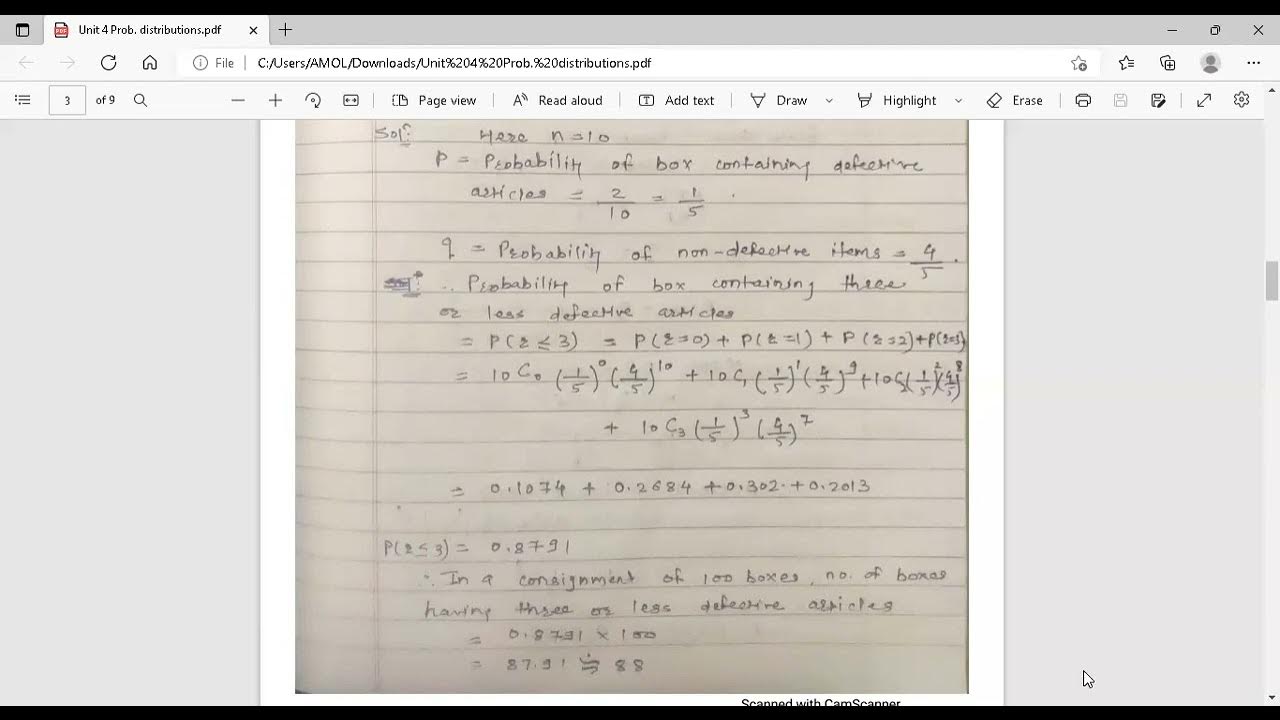 Unit 4 Prob. distributions.pdf
File C:/Users/AMOL/Downloads/Unit%204%20Prob.%20distributions.pdf
3 of 9 Page view Read aloud Add text Draw Highlight Erase
Solⁿ: Here n=10
P = Probability of box containing defective
articles = 2/10 = 1/5 .
q = Probability of non-defective items = 4/5 .
∴ Probability of box containing three
or less defective articles
= P(r ≤ 3) = P(r=0) + P(r=1) + P(r=2) + P(r=3)
= 10C₀ (1/5)⁰ (4/5)¹⁰ + 10C₁ (1/5)¹ (4/5)⁹ + 10C₂ (1/5)² (4/5)⁸
+ 10C₃ (1/5)³ (4/5)⁷
= 0.1074 + 0.2684 + 0.302 + 0.2013
P(r ≤ 3) = 0.8791
∴ In a consignment of 100 boxes, no. of boxes
having three or less defective articles
= 0.8791 × 100
= 87.91 ≒ 88
Scanned with CamScanner